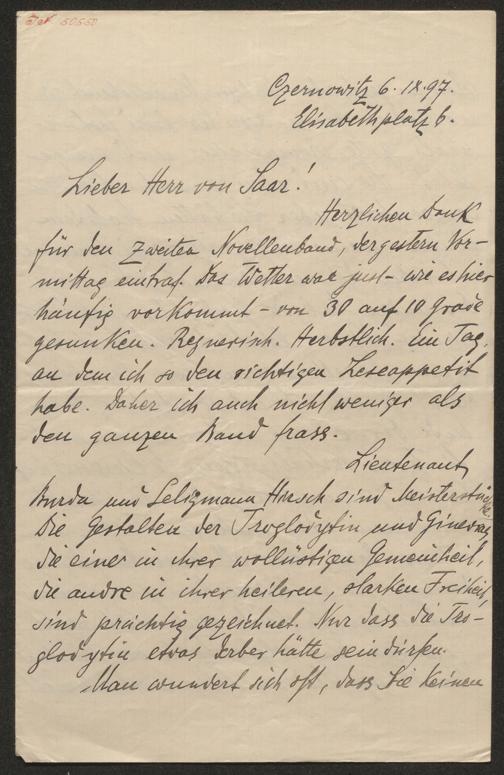 Czernowitz 6. IX. 97.
Elisabethplatz 6.
Lieber Herr von Saar!
Herzlichen Dank
für den zweiten Novellenband, der gestern Vor-
mittag eintraf. Das Wetter war just – wie es hier
häufig vorkommt – von 30 auf 10 Grade
gesunken. Regnerisch. Herbstlich. Ein Tag,
an dem ich so den richtigen Leseappetit
habe. Daher ich auch nicht weniger als
den ganzen Band frass.
Lieutenant
Burda und Seligmann Hirsch sind Meisterstücke
Die Gestalten der Troglodytin und Ginevras,
die eine in ihrer wollüstigen Gemeinheit,
die andre in ihrer heiteren, starken Freiheit,
sind prächtig gezeichnet. Nur dass die Tro-
glodytin etwas derber hätte sein dürfen.
Man wundert sich oft, dass Sie keinen